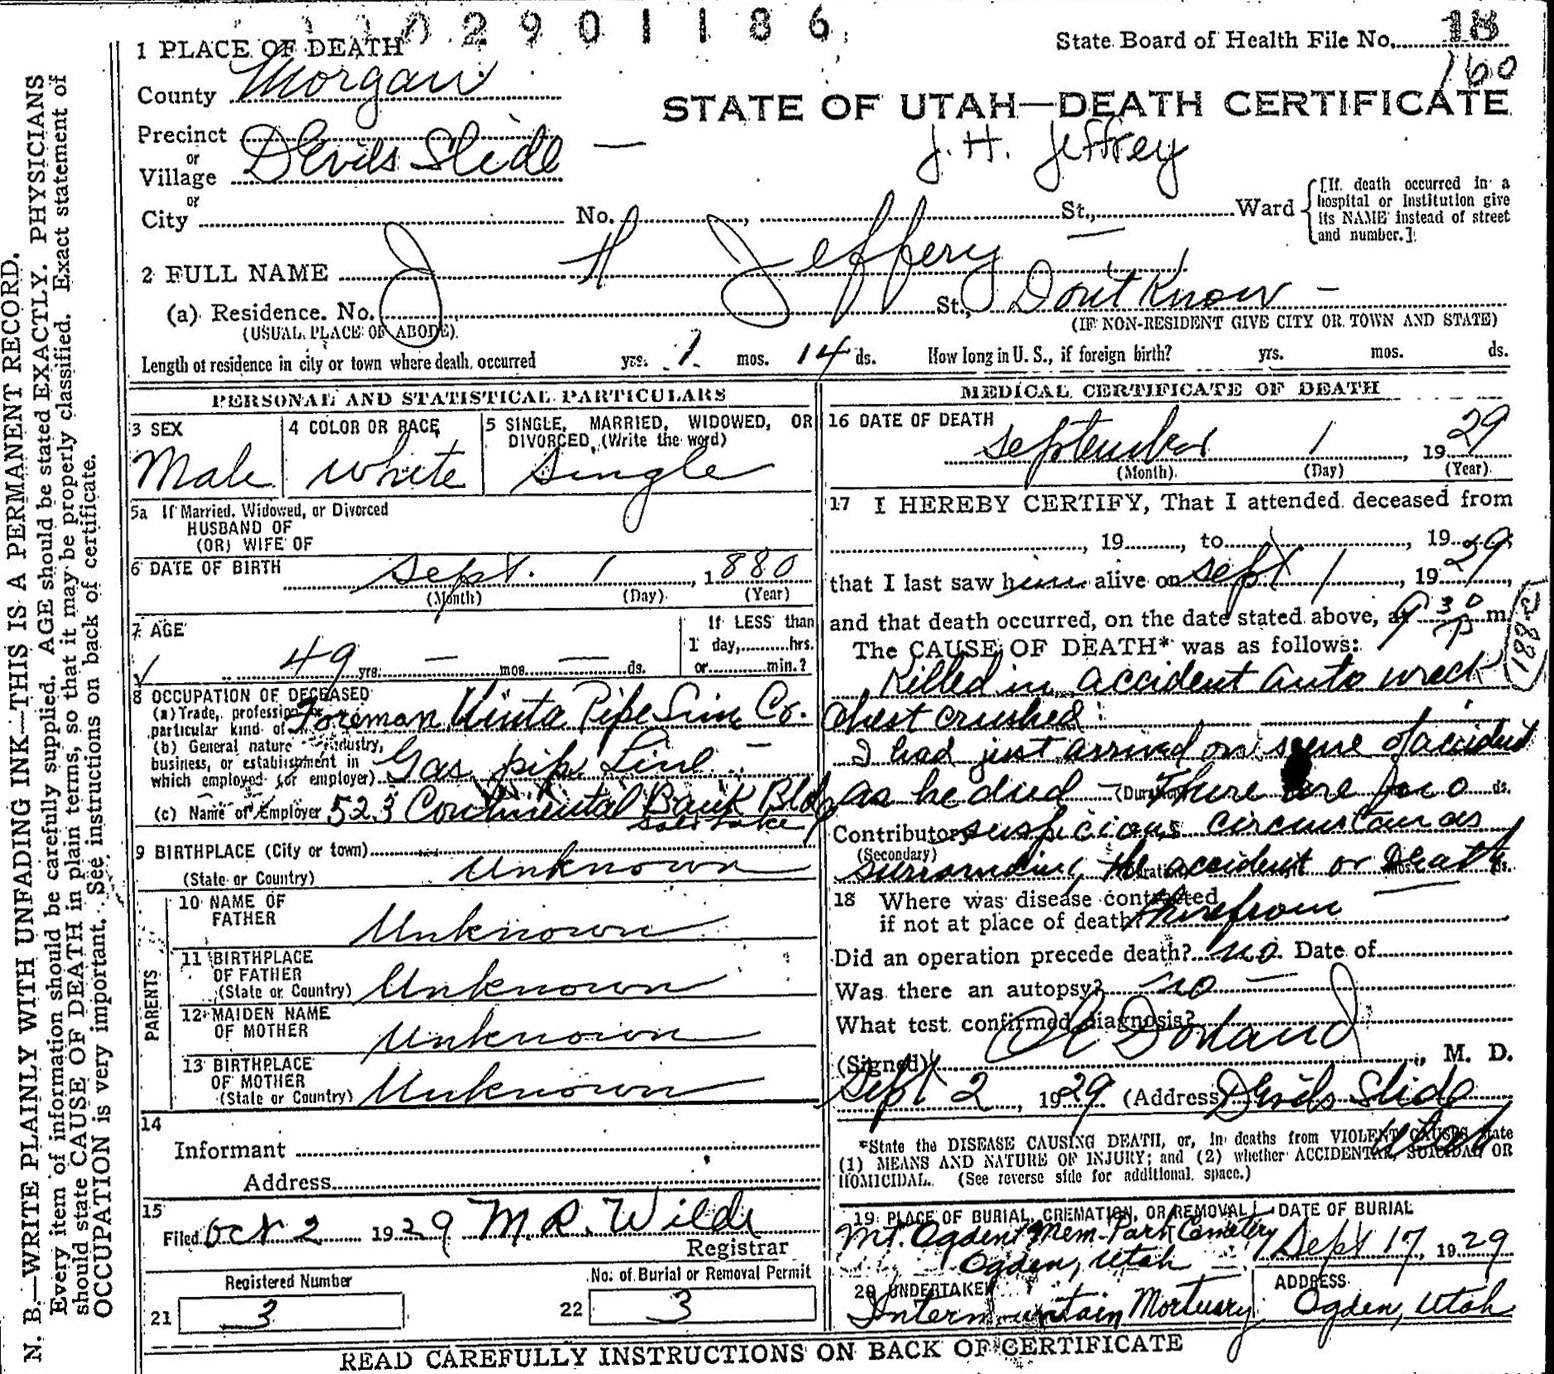 2901186
State Board of Health File No. 18
160
1 PLACE OF DEATH
County Morgan
STATE OF UTAH—DEATH CERTIFICATE
Precinct
or
Village Devils Slide —
J. H. Jeffrey
or
City No. , St., Ward
[If death occurred in a hospital or Institution give its NAME instead of street and number.]
2 FULL NAME J H Jeffery
(a) Residence. No. St., Don't Know —
(USUAL PLACE OF ABODE) (IF NON-RESIDENT GIVE CITY OR TOWN AND STATE)
Length of residence in city or town where death occurred yrs. 1 mos. 14 ds. How long in U. S., if foreign birth? yrs. mos. ds.
PERSONAL AND STATISTICAL PARTICULARS
3 SEX
Male
4 COLOR OR RACE
White
5 SINGLE, MARRIED, WIDOWED, OR DIVORCED, (Write the word)
Single
5a If Married, Widowed, or Divorced
HUSBAND OF
(OR) WIFE OF
6 DATE OF BIRTH Sept. 1, 1880
(Month) (Day) (Year)
7 AGE
49 yrs. — mos. — ds.
If LESS than
1 day, hrs.
or min.?
8 OCCUPATION OF DECEASED
(a) Trade, profession
particular kind of Foreman Uinta Pipe Line Co.
(b) General nature industry,
business, or establishment in
which employed (or employer) Gas pipe Line —
(c) Name of Employer 523 Continental Bank Bld
Salt Lake
9 BIRTHPLACE (City or town)
(State or Country) Unknown
PARENTS
10 NAME OF
FATHER Unknown
11 BIRTHPLACE
OF FATHER
(State or Country) Unknown
12 MAIDEN NAME
OF MOTHER Unknown
13 BIRTHPLACE
OF MOTHER
(State or Country) Unknown
14
Informant
Address
15
Filed Oct 2 1929 M. R. Wilde
Registrar
Registered Number
21 3
No. of Burial or Removal Permit
22 3
MEDICAL CERTIFICATE OF DEATH
16 DATE OF DEATH
September 1 1929
(Month) (Day) (Year)
17 I HEREBY CERTIFY, That I attended deceased from
, 19 , to , 1929
that I last saw him alive on Sept 1, 1929,
and that death occurred, on the date stated above, at 9 30 P m.
The CAUSE OF DEATH* was as follows:
Killed in accident auto wreck
188-2
Chest crushed.
I had just arrived on scene of accident
as he died — (Duration) There were no ds.
Contributory suspicious circumstances
(Secondary)
surrounding the accident or Death
18 Where was disease contracted
if not at place of death? therefrom
Did an operation precede death? no. Date of
Was there an autopsy? no —
What test confirmed diagnosis?
(Signed) , M. D.
Sept 2, 1929 (Address) Devils Slide
Utah
*State the DISEASE CAUSING DEATH, or, in deaths from VIOLENT CAUSES, state
(1) MEANS AND NATURE OF INJURY; and (2) whether ACCIDENTAL, SUICIDAL OR
HOMICIDAL. (See reverse side for additional space.)
19 PLACE OF BURIAL, CREMATION, OR REMOVAL
Mt. Ogden Mem. Park Cemetery
Ogden, Utah
DATE OF BURIAL
Sept 17, 1929
20 UNDERTAKER
Intermountain Mortuary
ADDRESS
Ogden, Utah
READ CAREFULLY INSTRUCTIONS ON BACK OF CERTIFICATE
N. B.—WRITE PLAINLY WITH UNFADING INK—THIS IS A PERMANENT RECORD.
Every item of information should be carefully supplied. AGE should be stated EXACTLY. PHYSICIANS
should state CAUSE OF DEATH in plain terms, so that it may be properly classified. Exact statement of
OCCUPATION is very important. See instructions on back of certificate.